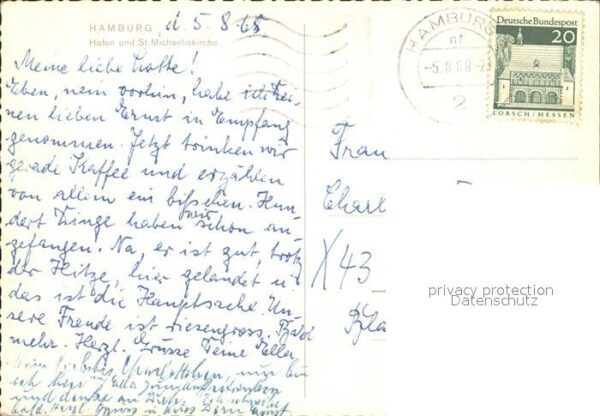 HAMBURG d. 5. 8. 68
Hafen und St. Michaeliskirche
Meine liebe Lotte!
Eben, nein vorhin, habe ich Dei-
nen lieben Ernst in Empfang
genommen. Jetzt trinken wir
gerade Kaffee und erzählen
von allem ein bißchen. Hun-
dert Dinge haben wir schon an-
gefangen. Na, er ist gut, trotz
der Hitze, hier gelandet u.
das ist die Hauptsache. Un-
sere Freude ist riesengross. Bald
mehr. Herzl. Grüsse Deine Ella
Mein liebes nun bin
ich hier
und denke an Dich.
bald. Herzl. Gruss u. Kuss Dein Ernst
HAMBURG
-5.8.68-
2
Deutsche Bundespost
20
LORSCH/HESSEN
Frau
Charl
X 43
privacy protection
Datenschutz